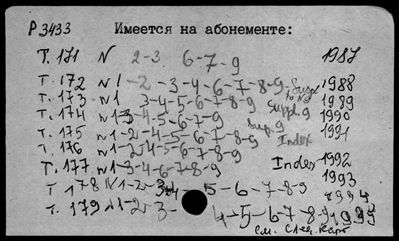 Р 3433 Имеется на абонементе:
Т. 171 N 2-3- 6-7-9 1987
Т. 172 N1-2-3-4-6-7-8-9 1988
Т. 173 N1 3-4-5-6-7-8-9 1989
Т. 174 N1-3-4-5-6-7-9 Suppl. 9 1990
Т. 175 N1-2-4-5-6-7-8-9 Sup. 9 1991
Т. 176 N1-2-4-5-6-7-8-9 Index
Т. 177 N1-3-4-6-7-8-9 Index 1992
Т. 178 N1-2-3-4-5-6-7-8-9 1993
1994
Т. 179 N1-2-3- 4-5-6-7-8-9 1995
см. след. карт